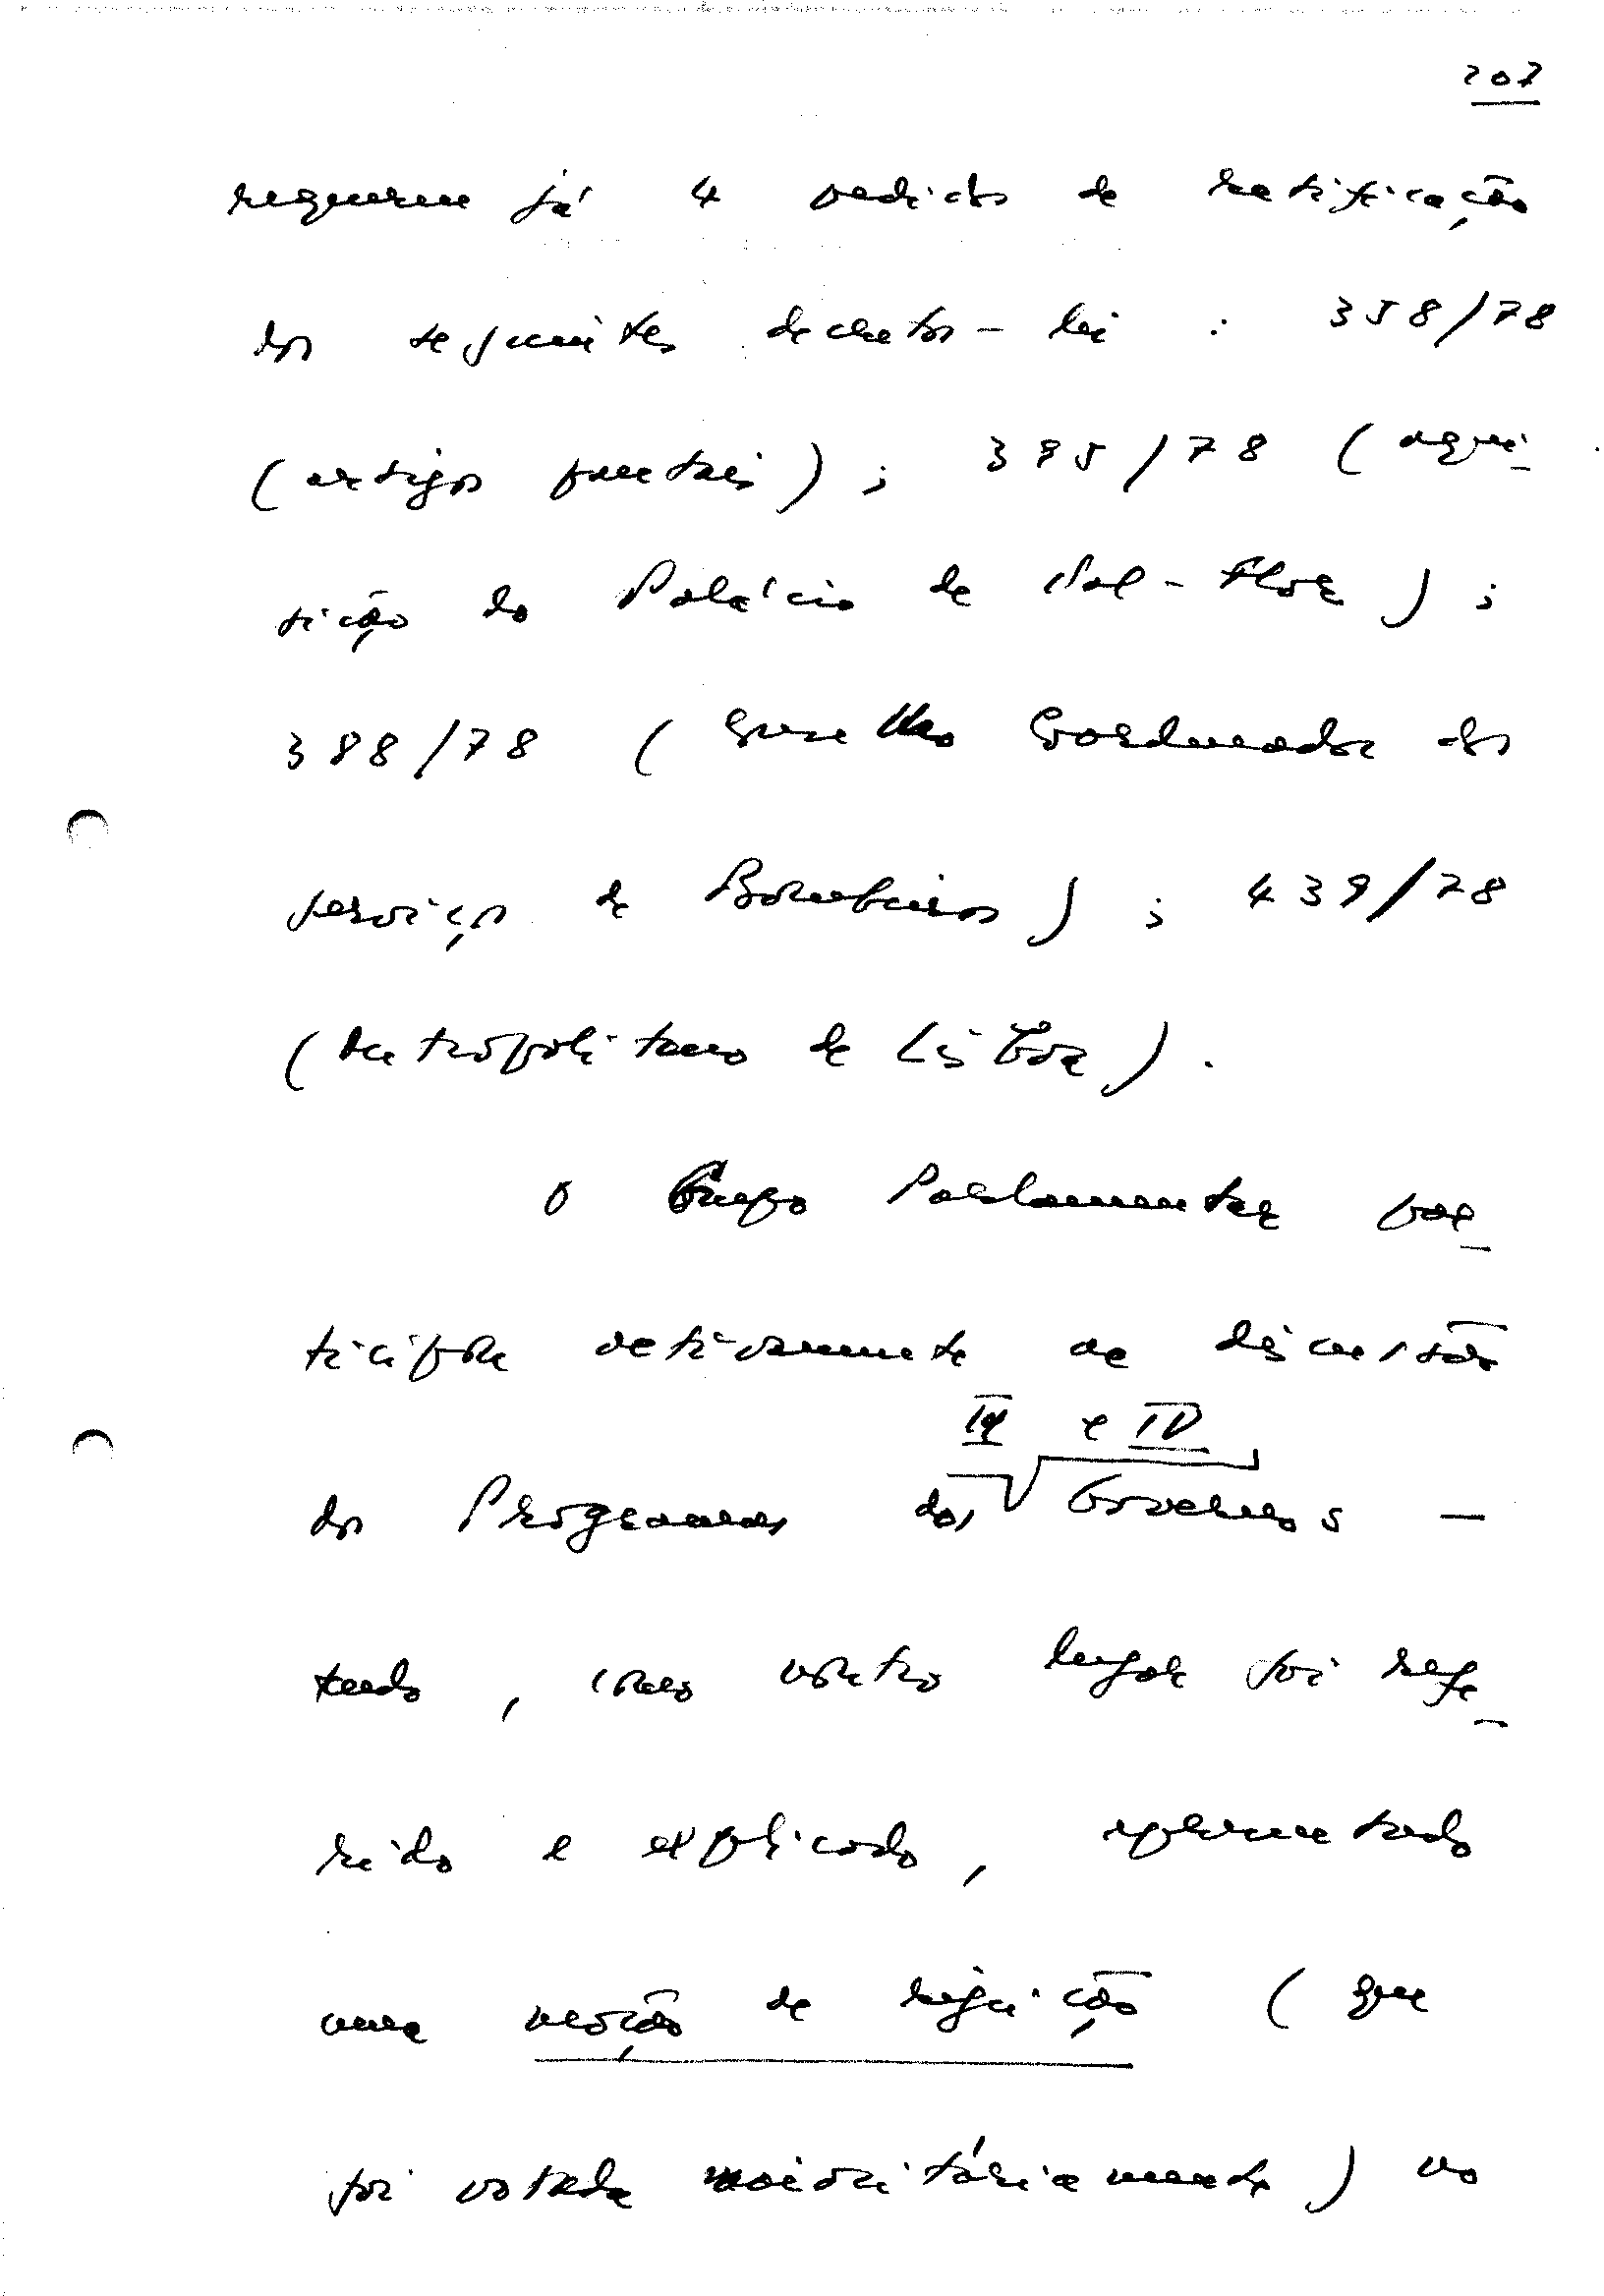 207
requereu já 4 pedidos de ratificação
dos seguintes decretos-lei : 358/78
(artigos pautais) ; 385/78 (aqui-
sição do Palácio de Val-Flor) ;
388/78 ( Coordenador do
serviço de Bombeiros) ; 439/78
(Metropolitano de Lisboa) .
O Grupo Parlamentar par-
ticipou activamente na discussão
dos Programas dos III e IV Governos -
tendo, como noutro lugar foi refe-
rido e explicado, apresentado
uma moção de rejeição (que
foi votada maioritáriamente) no